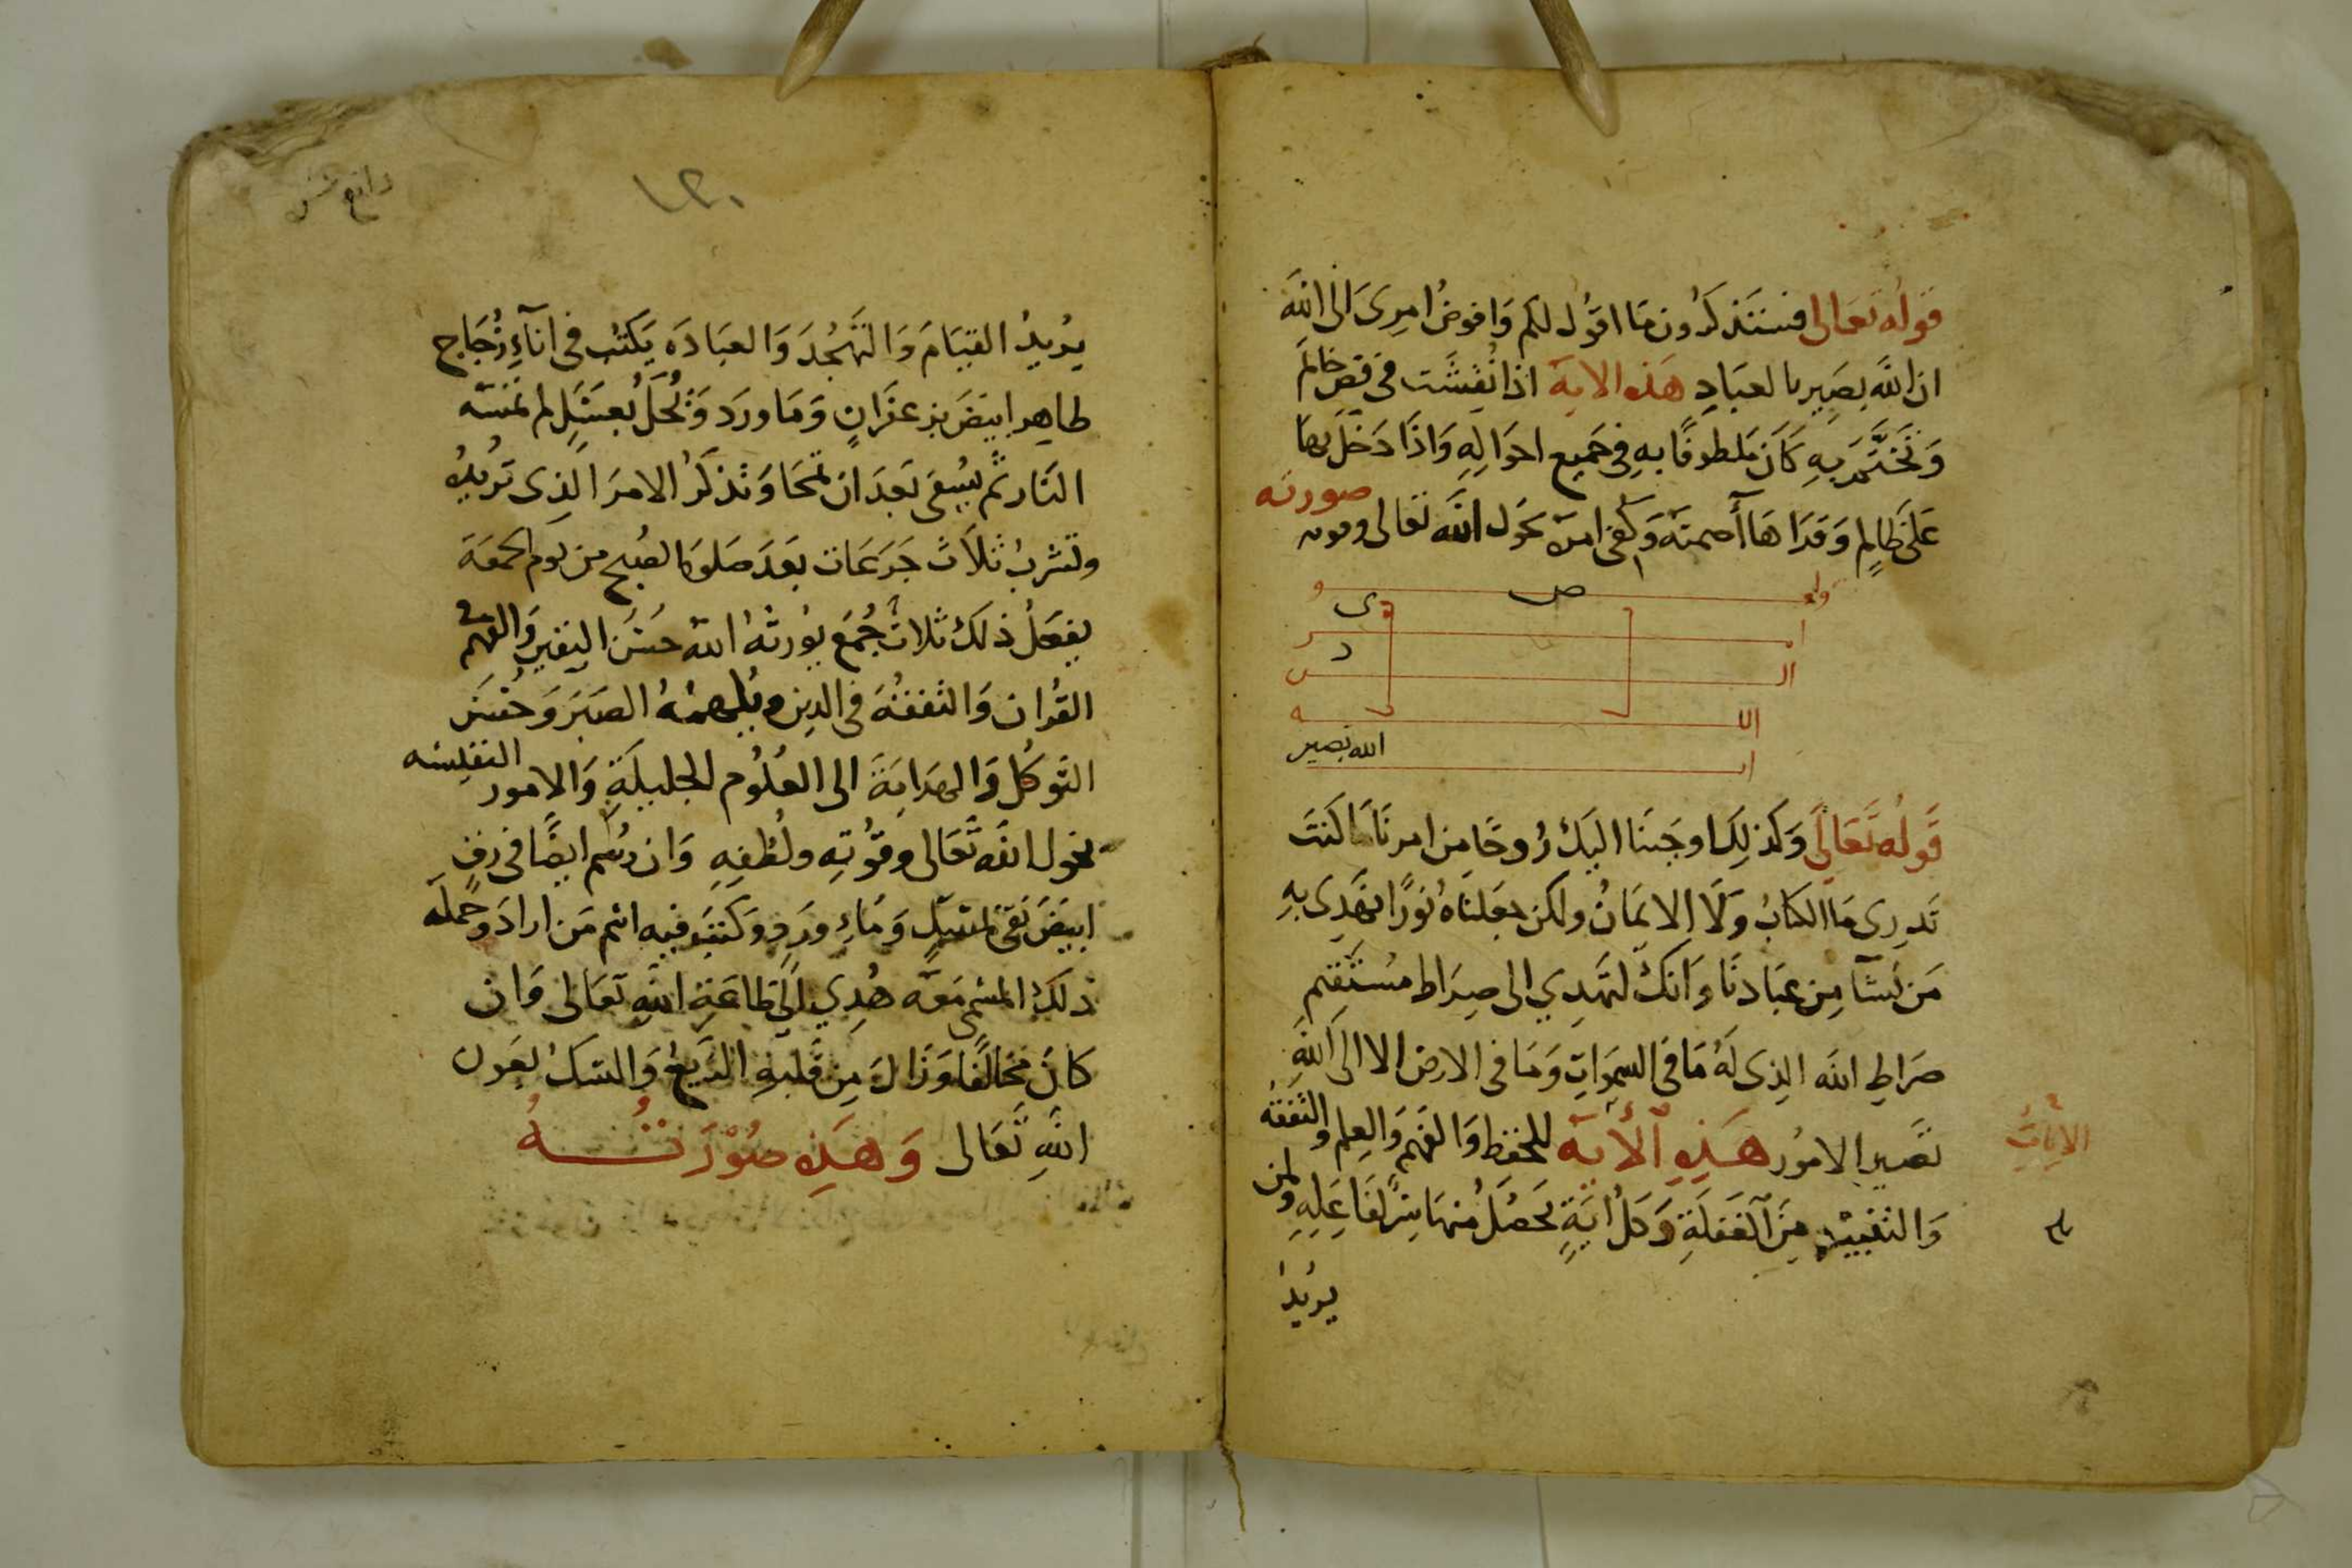 قوله تعالى فستذكرون ما اقول لكم وافوض امرى الى الله
ان الله بصير بالعباد هذه الاية اذا نقشت في فص خاتم
وتختم به كان ملطوفا به في جميع احواله واذا دخل بها
على ظالم وقراها أصمته وكفى امره بحول الله تعالى وقوته
صورته
ص
ى
د
الله بصير
قوله تعالى وكذلك اوحينا اليك روحا من امرنا ما كنت
تدرى ما الكتاب ولا الايمان ولكن جعلناه نورا نهدى به
من نشآ من عبادنا وانك لتهدي الى صراط مستقيم
صراط الله الذى له ما في السموات وما في الارض الا الى الله
تصير الامور هذه الأية للحفظ والفهم والعلم والتفقه
الايات
والتنبيه من الغفلة وكل اية يحصل منها سر لفاعله ولمن
يريد
١٢٠
يريد القيام والتهجد والعباده يكتب في انآء زجاج
طاهر ابيض بزعفران وما ورد وتحل بعسل لم تمسه
النار ثم يسقى بعد ان تمحا وتذكر الامر الذى تريد
وتشرب ثلاث جرعات بعد صلوة الصبح من يوم الجمعة
يفعل ذلك ثلاث جمع يورثه الله حسن اليقين والفهم في
القران والتفقه في الدين ويلهمه الصبر وحسن
التوكل والهداية الى العلوم الجليلة والامور النفيسه
بحول الله تعالى وقوته ولطفه وان رسم ايضا في رق
ابيض نقى بمسك وماء ورد وكتب فيه اسم من اراد وحمله
ذلك المسمى معه هدي الى طاعة الله تعالى وان
كان مخالفا وزال من قلبه الزيغ والشك بعون
الله تعالى وهذه صورته